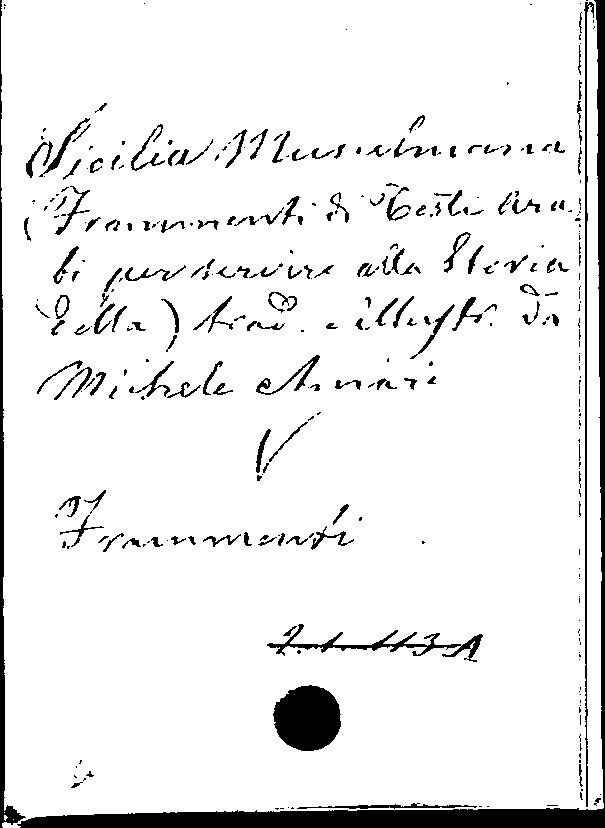 Sicilia Musulmana
(Frammenti di Testi Ara-
bi per servire alla Storia
della) trad. e illustr. da
Michele Amari
V
Frammenti